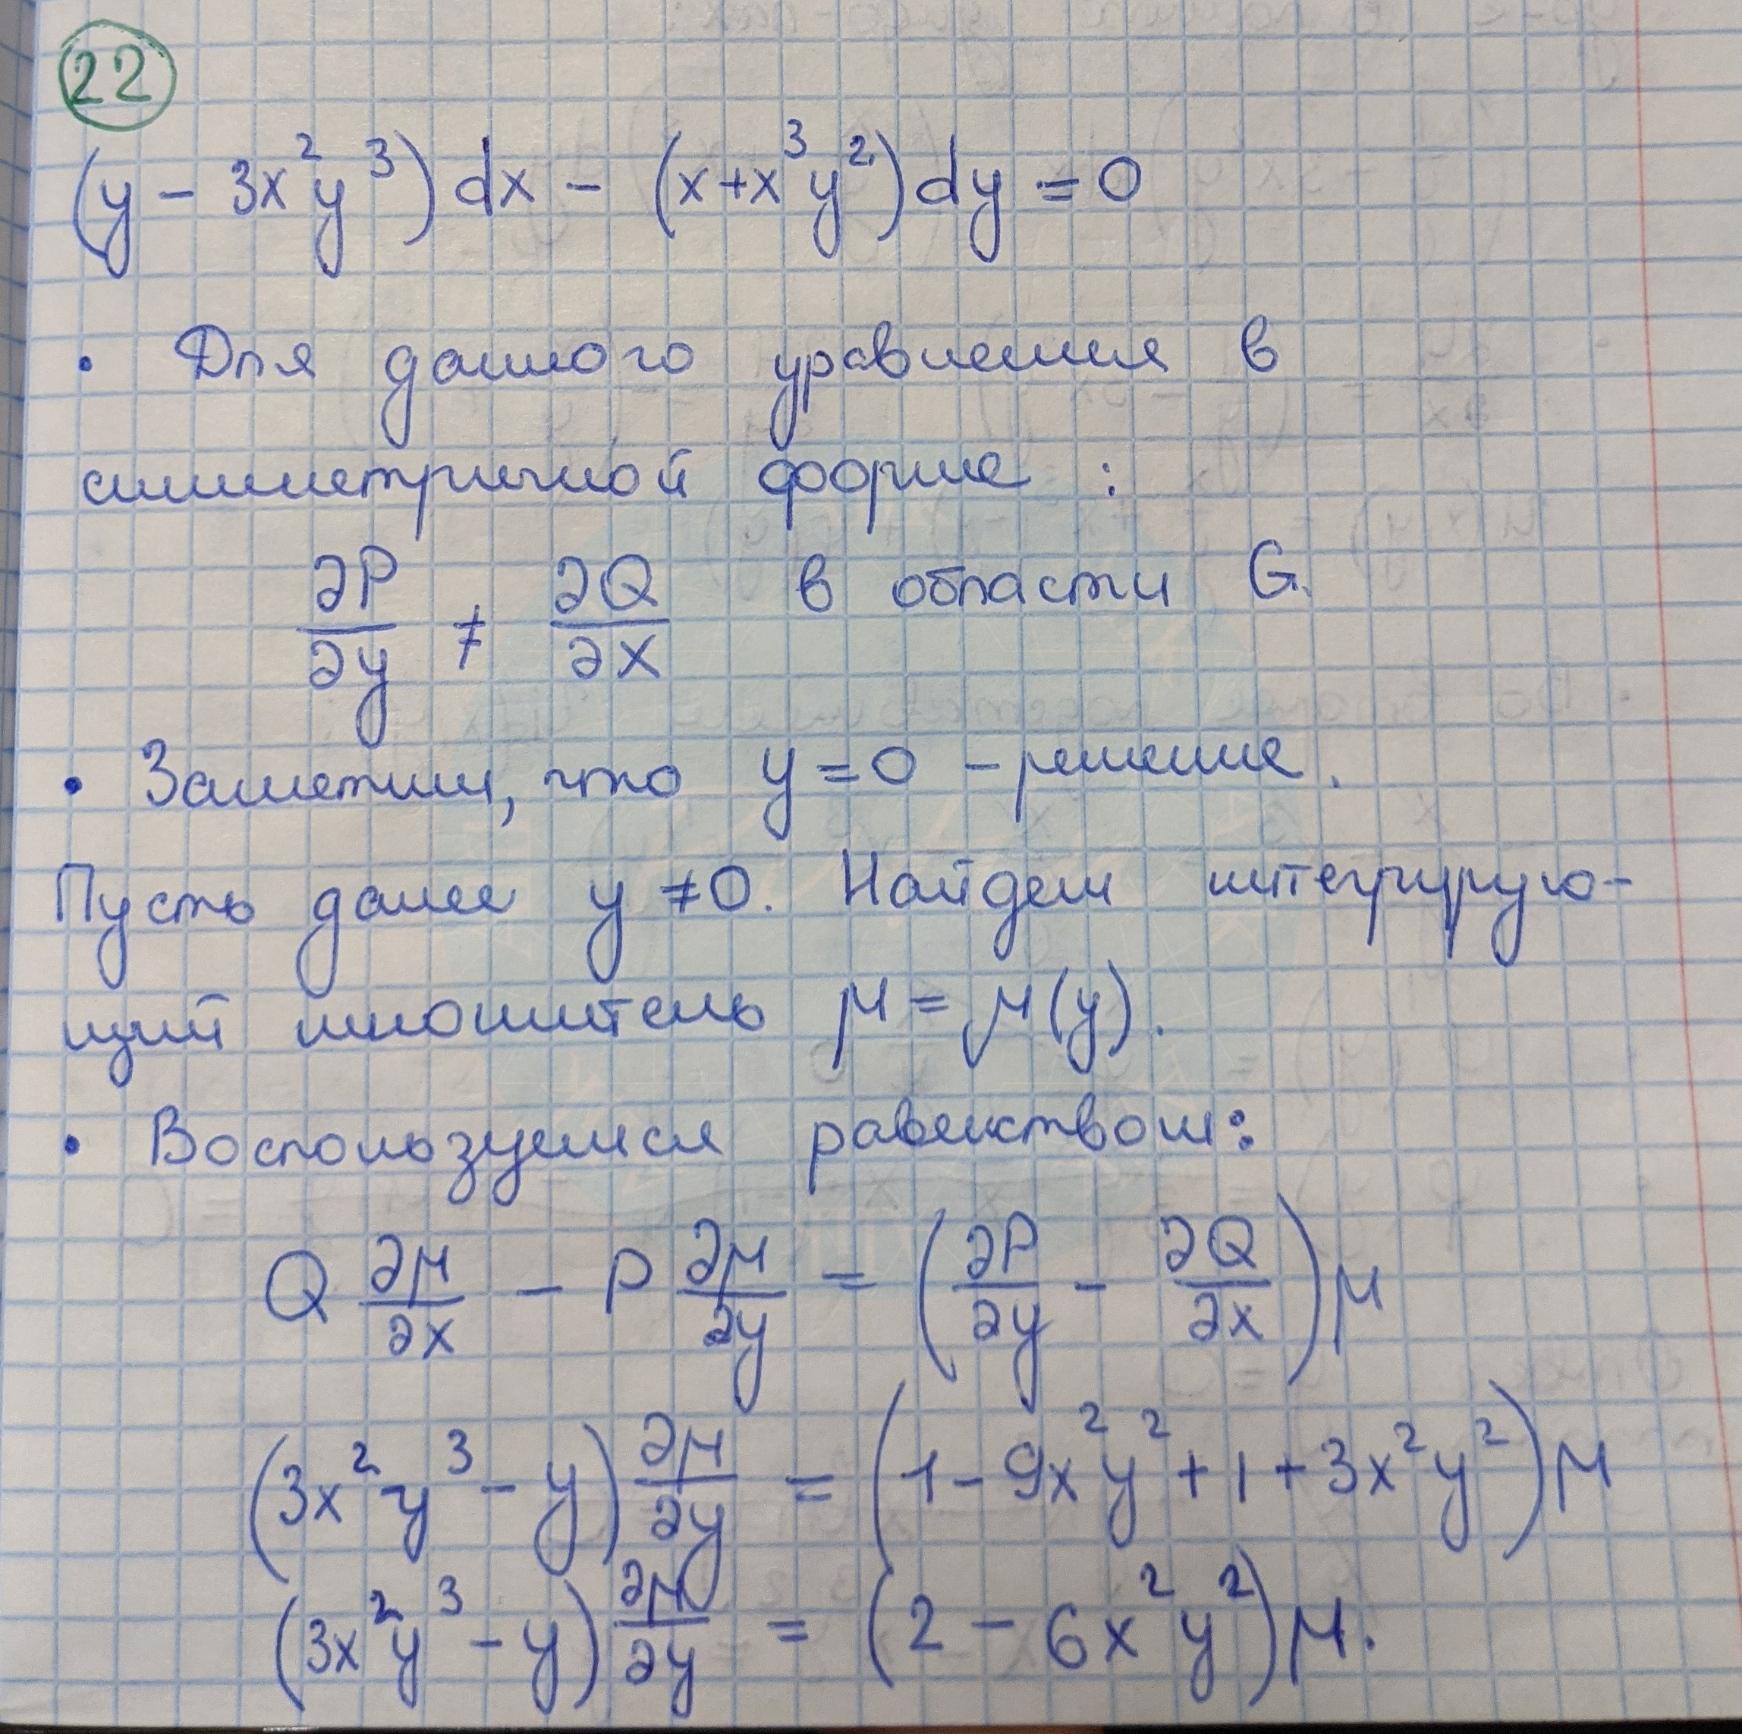 22
(y - 3x²y³)dx - (x+x³y²)dy = 0
• Для данного уравнения в
симметричной форме :
∂P/∂y ≠ ∂Q/∂x в области G.
• Заметим, что y = 0 - решение.
Пусть далее y ≠ 0. Найдем интегрирую-
щий множитель μ = μ(y).
• Воспользуемся равенством:
Q ∂μ/∂x - P ∂μ/∂y = (∂P/∂y - ∂Q/∂x)μ
(3x²y³ - y) ∂μ/∂y = (1 - 9x²y² + 1 + 3x²y²)μ
(3x²y³ - y) ∂μ/∂y = (2 - 6x²y²)μ.